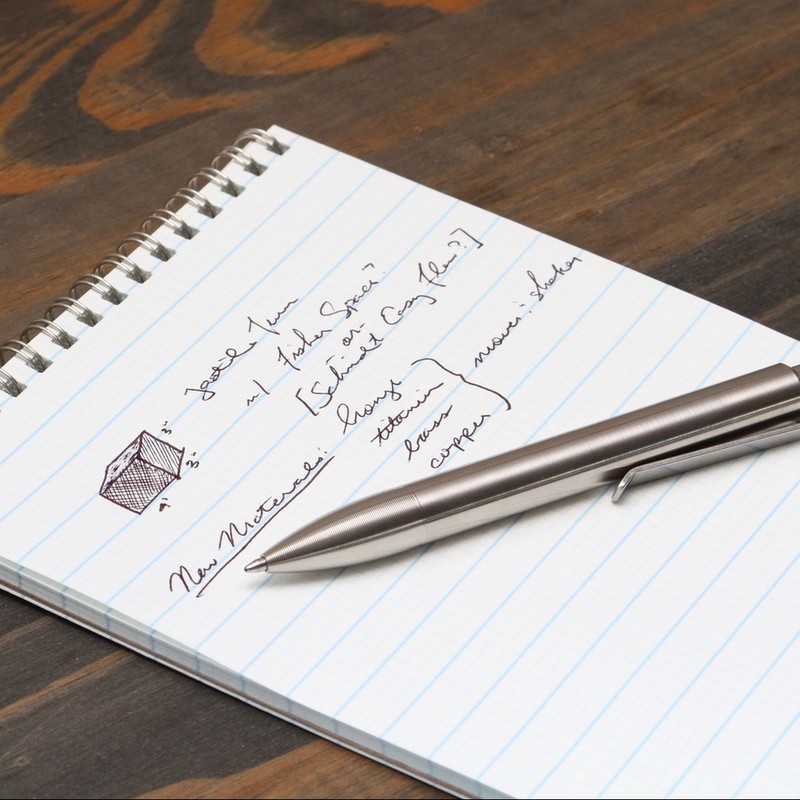 Tactile Turn
w/ Fisher Space?
-or-
[Schmidt Easy Flow?]
New Materials: bronze
titanium
brass
copper
mover: shaker
3"
3"
4"